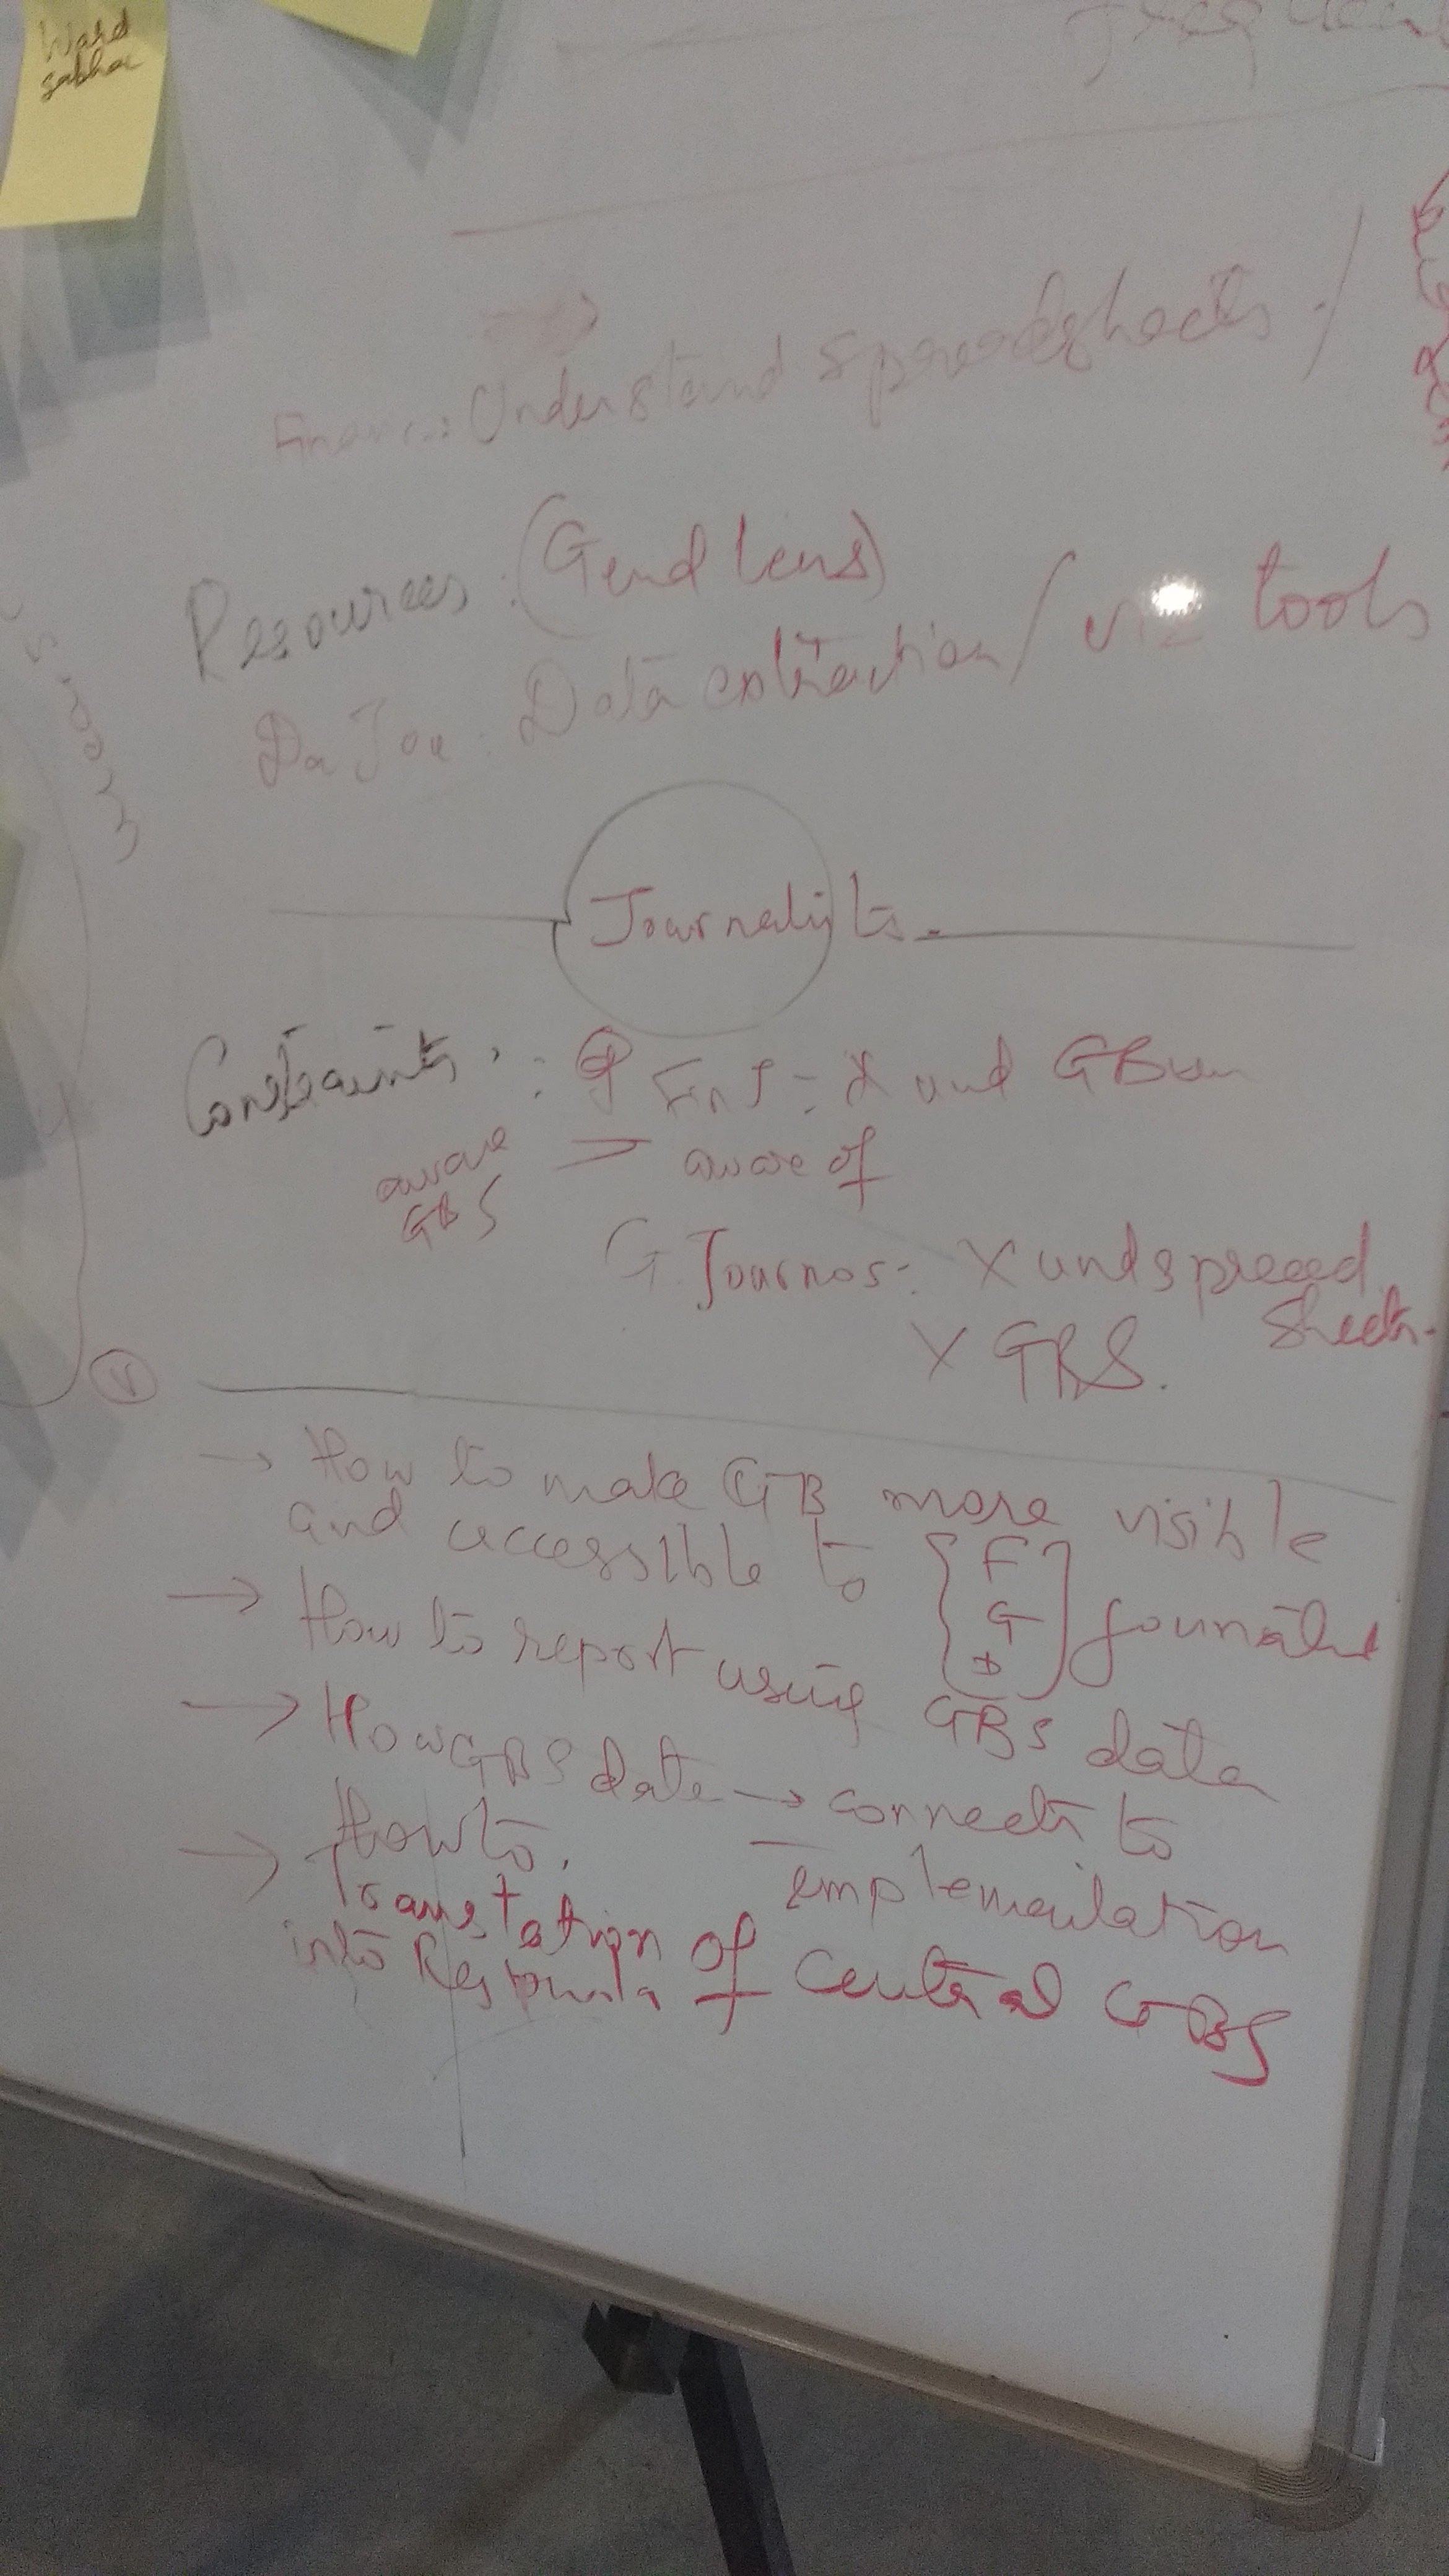 Ward
sabha
Understand spreadsheets /
Resources : (Gend lens)
Da Jou : Data extraction / viz tools
Journalists
Constraints : Fin J - X und GB
aware
GBS
aware of
G Journos : X und spread
sheets.
X GBS.
→ How to make GB more visible
and accessible to { F G D } Journalist
→ How to report using GBS data
→ How GBS data → connects to
implementation
→ How to
Translation of Central GBS
into